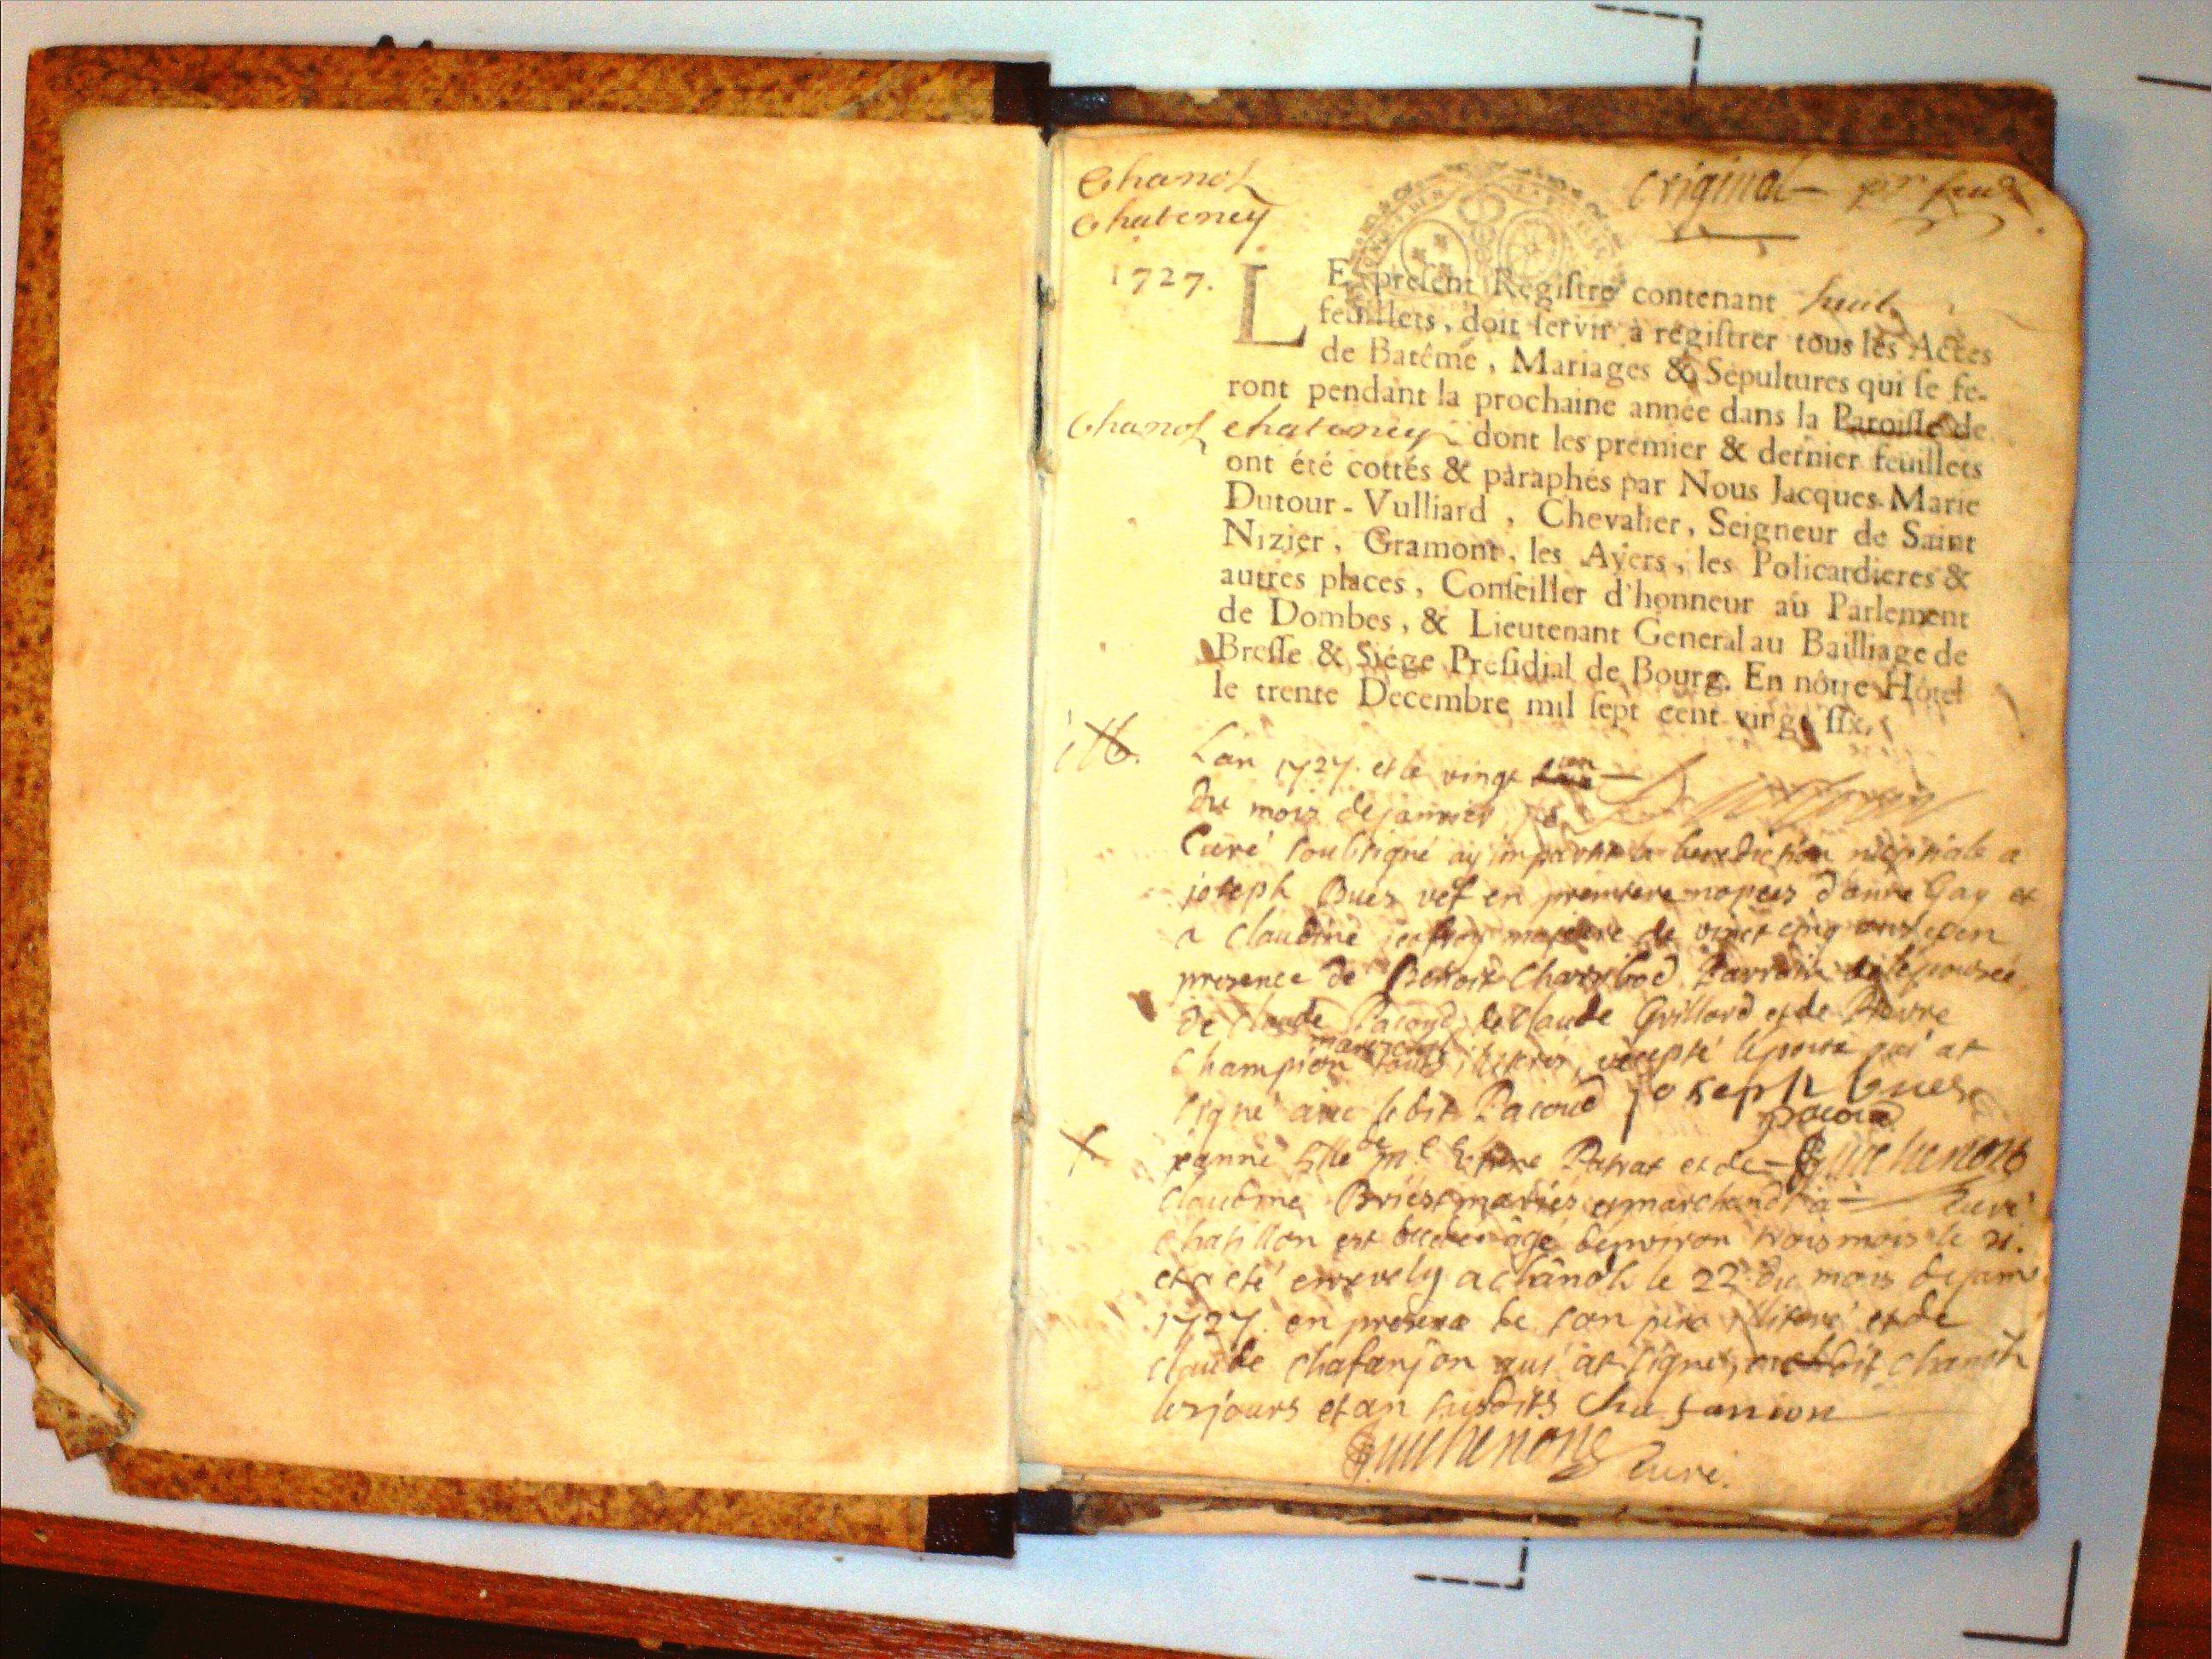 Chanoz
Chateney
Original pr feuil
1727.
LE present Registre contenant huit
feuillets, doit servir à régistrer tous les Actes
de Batême, Mariages & Sépultures qui se fe-
ront pendant la prochaine année dans la Paroisse de
Chanoz chateney dont les premier & dernier feuillets
ont été cottés & paraphés par Nous Jacques-Marie
Dutour-Vulliard, Chevalier, Seigneur de Saint
Nizier, Gramont, les Ayers, les Policardieres &
autres places, Conseiller d'honneur au Parlement
de Dombes, & Lieutenant General au Bailliage de
Bresse & Siége Présidial de Bourg. En nôtre Hôtel
le trente Decembre mil sept cent vingt six.
L'an 1727. et le vingt
du mois de janvier je
Curé soubsigné ay imparti la benediction nuptiale a
joseph Buez vef en premiere nopces d'anne Gay et
a claudine majeure de vingt cinq ans et en
presence de Benoit Charribod Parrain de l'epousée
de claude Pacoud de Claude Grillard et de Pierre
Champion mareschal touts illiterés, excepté l'epoux qui at
signé avec ledit Pacoud joseph buez
pacoud
jeanne fille de Mr Patrat et de Guichenon
claudine Briest mariés et marchands a Curé
chatillon est decedée âgé d'environ trois mois le 21.
et a eté ensevely a chânoz le 22 du mois de janv
1727. en presence de son pere illiteré et de
claude chafanjon qui at signé, audit chanoz
les jours et an susdits Chafanion
Guichenon Curé.